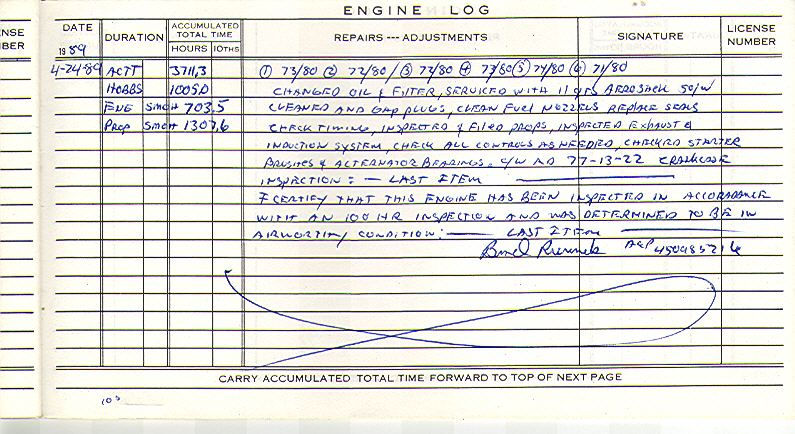 ENGINE LOG
ENSE
NUMBER
DATE
1989
DURATION
ACCUMULATED TOTAL TIME
HOURS 10THS
REPAIRS --- ADJUSTMENTS
SIGNATURE
LICENSE NUMBER
4-24-89 ACTT 3711.3 ① 73/80 ② 72/80 / ③ 72/80 ④ 73/80 ⑤ 74/80 ⑥ 71/80
HOBBS 1005.0 CHANGED OIL & FILTER, SERVICED WITH 11 qts AEROSHELL 50/W
ENG SMOH 703.5 CLEANED AND GAP PLUGS, CLEAN FUEL NOZZELS REPLACE SEALS
PROP SMOH 1307.6 CHECK TIMING, INSPECTED & FILED PROPS, INSPECTED EXHAUST &
INDUCTION SYSTEM, CHECK ALL CONTROLS AS NEEDED, CHECKED STARTER
BRUSHES & ALTERNATOR BEARINGS. C/W AD 77-13-22 CRANKCASE
INSPECTION: — LAST ITEM —
I CERTIFY THAT THIS ENGINE HAS BEEN INSPECTED IN ACCORADANCE
WITH AN 100 HR INSPECTION AND WAS DETERMINED TO BE IN
AIRWORTHY CONDITION: — LAST ITEM —
A&P
CARRY ACCUMULATED TOTAL TIME FORWARD TO TOP OF NEXT PAGE